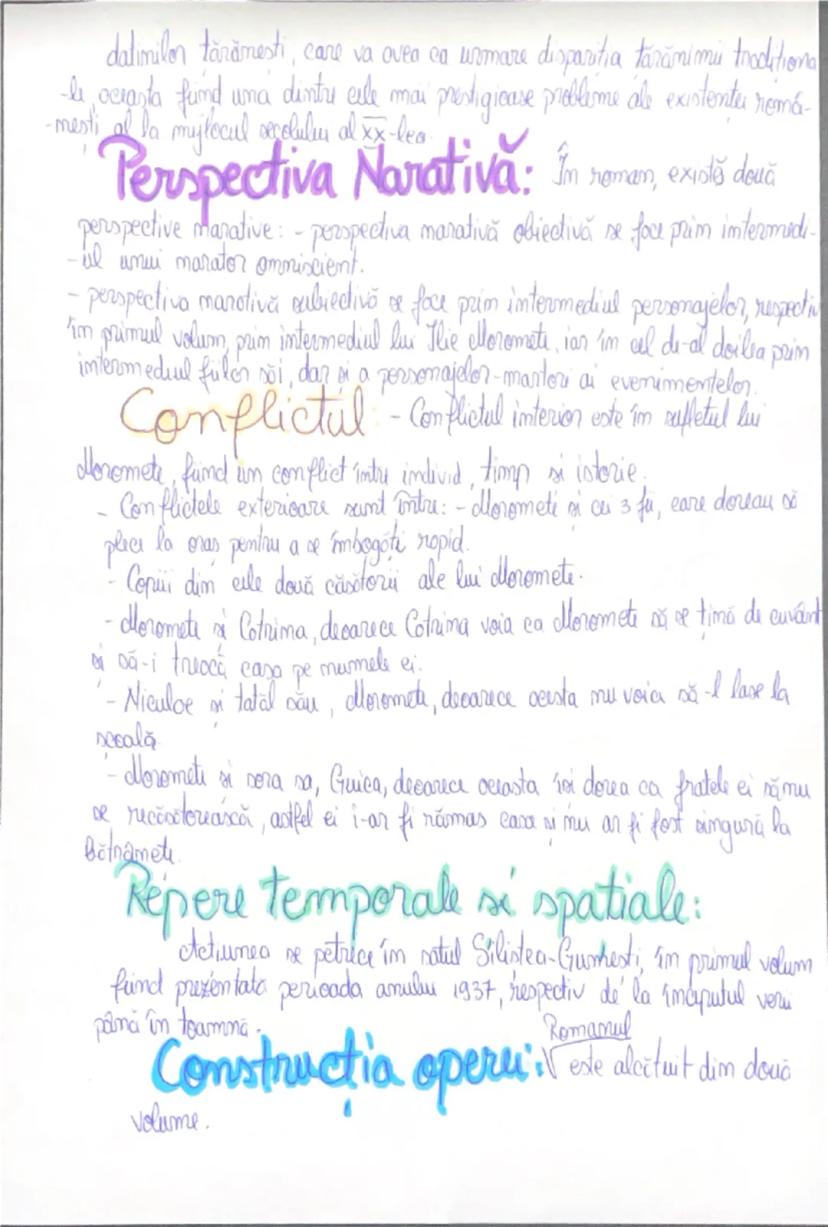 datinilor țărănești, care va avea ca urmare dispariția țărănimii tradiționa
-le, aceasta fiind una dintre cele mai prestigioase probleme ale existenței româ-
-nești al la mijlocul secolului al XX-lea.
Perspectiva Narativă: În roman, există două
perspective narative: - perspectiva narativă obiectivă se face prin intermedi-
-ul unui narator omniscient.
- perspectiva narativă subiectivă se face prin intermediul personajelor, respectiv
în primul volum, prin intermediul lui Ilie Moromete, iar în cel de-al doilea prin
intermediul fiilor săi, dar și a personajelor-martori ai evenimentelor.
Conflictul - Conflictul interior este în sufletul lui
Moromete, fiind un conflict între individ, timp și istorie.
- Conflictele exterioare sunt între: - Moromete și cei 3 fii, care doreau să
plece la oraș pentru a se îmbogăți rapid.
- Copiii din cele două căsătorii ale lui Moromete.
- Moromete și Catrina, deoarece Catrina voia ca Moromete să se țină de cuvânt
și să-i treacă casa pe numele ei.
- Niculae și tatăl său, Moromete, deoarece acesta nu voia să-l lase la
școală.
- Moromete și sora sa, Guica, deoarece aceasta își dorea ca fratele ei să nu
se recăsătorească, astfel ei i-ar fi rămas casa și nu ar fi fost singură la
Bătrânețe.
Repere temporale si spatiale:
Acțiunea se petrece în satul Siliștea-Gumești, în primul volum
fiind prezentată perioada anului 1937, respectiv de la începutul verii
până în toamnă.
Romanul
Construcția operei: V este alcătuit din două
volume.